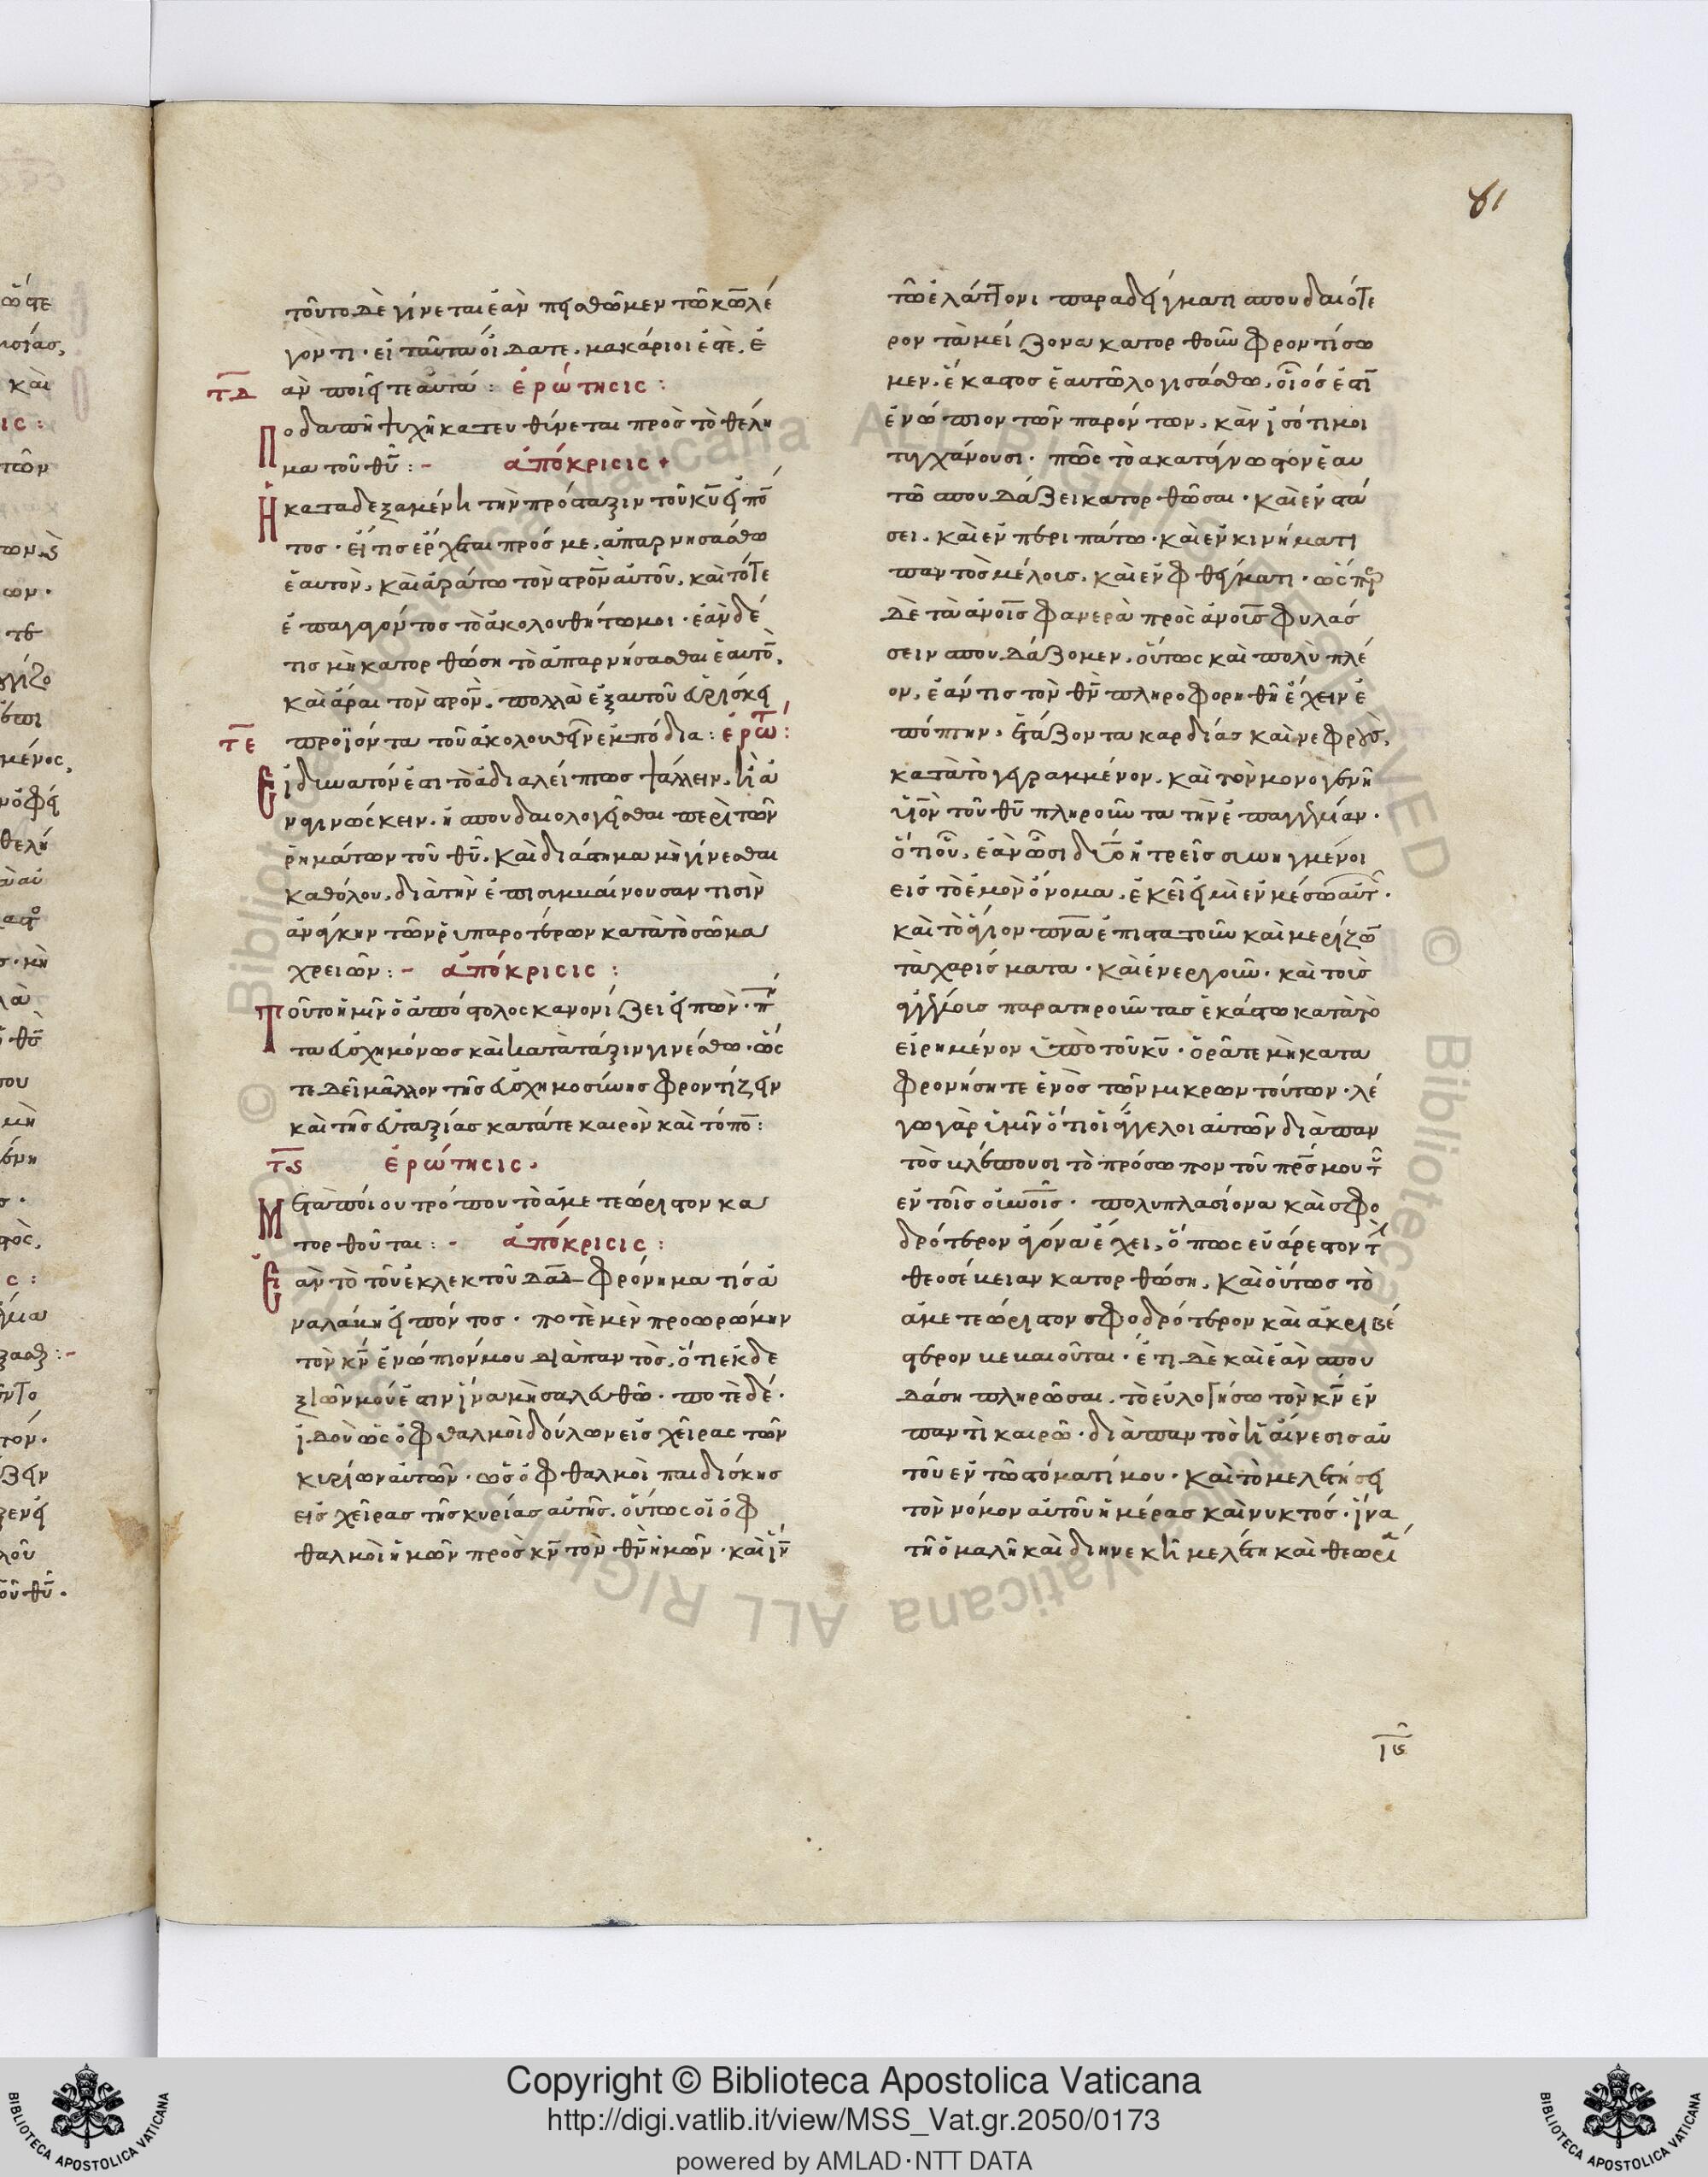 81
τοῦτο δὲ γίνεται ἐὰν πεισθῶμεν τῶ κ̅ω̅ λέ
γοντι· εἰ ταῦτα οἴδατε, μακάριοί ἐστε, ἐ
τ̅δ̅ ὰν ποιεῖτε αὐτά: ἐρώτησις:
Ποδαπὴ ψυχὴ κατευθύνεται πρὸς τὸ θέλη
μα τοῦ θ̅υ̅:- ἀπόκρισις +
Ἡ καταδεξαμένη τὴν πρόσταξιν τοῦ κ̅υ̅ εἰπό
τος· εἴ τις ἔρχεται πρός με, ἀπαρνησάσθω
ἑαυτὸν, καὶ ἀράτω τὸν σ̅ρ̅ο̅ν̅ αὐτοῦ, καὶ τότε
ἐπαγαγόντος τὸ ἀκολουθήτω μοι· ἐὰν δέ
τις μὴ κατορθώση τὸ ἀπαρνήσασθαι ἑαυτὸ,
καὶ ἄραι τὸν σ̅ρ̅ο̅ν̅, πολλὰ ἐξ αυτοῦ εὑρίσκει
τ̅ε̅ προϊόντα τοῦ ἀκολουθεῖν ἐμπόδια: ἐρώτ:
Εἰ δυνατόν ἐστι τὸ ἀδιαλείπτως ψάλλειν, ἢ ἀ
ναγινώσκειν, ἢ σπουδαιολογεῖσθαι περὶ τῶν
ῥημάτων τοῦ θ̅υ̅. καὶ διάστημα μὴ γίνεσθαι
καθόλου, διὰ τὴν ἐπισυμμαίνουσαν τισὶν
ἀνάγκην τῶν ῥυπαροτέρων κατὰ τὸ σῶμα
χρειῶν:- ἀπόκρισις:
Τοῦτο ἡμῖν ὁ ἀπόστολος κανονίζει εἰπών· πν
τα εὐσχημόνως καὶ κατὰ τάξιν γινέσθω· ὥσ
τε δεῖ μᾶλλον τῆς εὐσχημοσύνης φροντίζειν
καὶ τῆς εὐταξίας κατά τε καιρὸν καὶ τόπο:
τ̅ς̅ ἐρώτησις.
Μετὰ ποίου τρόπου τὸ ἀμετεώριστον κα
τορθοῦται:- ἀπόκρισις:
Ἐὰν τὸ τοῦ ἐκλεκτοῦ δ̅α̅δ̅ φρόνημά τις ἀ
ναλάβη εἰπόντος· ποτὲ μὲν προωρώμην
τὸν κ̅ν̅ ἐνώπιόν μου διαπαντὸς, ὅτι ἐκ δε
ξιῶν μού ἐστιν ἵνα μὴ σαλευθῶ· ποτὲ δέ·
ἰδοὺ ὡς ὀφθαλμοὶ δούλων εἰς χεῖρας τῶν
κυρίων αὐτῶν· ὡς ὀφθαλμοὶ παιδίσκης
εἰς χεῖρας τῆς κυρίας αὐτῆς, οὕτως οἱ ὀφ
θαλμοὶ ἡμῶν πρὸς κ̅ν̅ τὸν θ̅ν̅ ἡμῶν· καὶ ἵν
τῶ ἐλάττονι παραδείγματι σπουδαιότε
ρον τὰ μείζονα κατορθοῦν φροντίσω
μεν, ἕκαστος ἑαυτῶ λογισάσθω, οἷός ἐστὶ
ἐνώπιον τῶν παρόντων, κἂν ἰσότιμοι
τυγχάνουσι· πῶς τὸ ακατάγνωστον ἑαυ
τῶ σπουδάζει κατορθῶσαι· καὶ ἐν στά
σει, καὶ ἐν περιπάτω· καὶ ἐν κινήματι
παντὸς μέλους, καὶ ἐν φθέγματι· ὥσπερ
δὲ τὰ ἀ̅ν̅ο̅ι̅ς̅ φανερὰ πρὸς ἀ̅ν̅ο̅ι̅ς̅ φυλάσ
σειν σπουδάζομεν, οὕτως καὶ πολὺ πλέ
ον, ἐάν τις τὸν θ̅ν̅ πληροφορηθῆ ἔχειν ἐ
πόπτην, ἐτάζοντα καρδίας καὶ νεφροὺς,
κατὰ τὸ γεγραμμένον, καὶ τὸν μονογενῆ
υ̅ν̅ τοῦ θ̅υ̅ πληροῦντα τὴν ἐπαγγελίαν·
ὅτι οὗ, ἐὰν ὦσι δύο ἢ τρεῖς συνηγμένοι
εἰς τὸ ἐμὸν ὄνομα, ἐκεῖ εἰμὶ ἐν μέσω αὐτ·
καὶ τὸ ἅγιον π̅ν̅α̅ ἐπιστατοῦν καὶ μερίζω
τὰ χαρίσματα· καὶ ἐνεργοῦν· καὶ τοὺς
ἀγγέλους παρατηροῦντας ἑκάστω κατὰ τὸ
εἰρημένον ὑπὸ τοῦ κ̅υ̅· ὁρᾶτε μὴ κατα
φρονήσητε ἑνὸς τῶν μικρων τούτων· λέ
γω γὰρ ὑμῖν ὅτι οἱ ἄγγελοι αὐτῶν διαπαν
τὸς βλέπουσι τὸ πρόσωπον τοῦ π̅ρ̅ς̅ μου τ
ἐν τοῖς ο̅υ̅ν̅ο̅ι̅ς̅· πολυπλασίονα καὶ σφο
δρότερον ἀγῶνα ἔχει, ὅπως εὐάρεστον τ
θεοσέβειαν κατορθώση, καὶ οὕτως τὸ
ἀμετεώριστον σφοδρότερον καὶ ἀκριβέ
στερον βεβαιοῦται· ἔτι δὲ καὶ ἐὰν σπου
δάση πληρῶσαι, τὸ εὐλογήσω τὸν κ̅ν̅ ἐν
παντὶ καιρῶ· διαπαντὸς ἡ αἴνεσις αὐ
τοῦ ἐν τῶ στόματί μου· καὶ τὸ μελετήσει
τὸν νόμον αὐτοῦ ἡμέρας καὶ νυκτός· ἵνα
τῆ ὁμαλῆ καὶ διηνεκῆ μελέτη καὶ θεωρία
Copyright © Biblioteca Apostolica Vaticana
http://digi.vatlib.it/view/MSS_Vat.gr.2050/0173
powered by AMLAD·NTT DATA
BIBLIOTECA APOSTOLICA VATICANA
BIBLIOTECA APOSTOLICA VATICANA